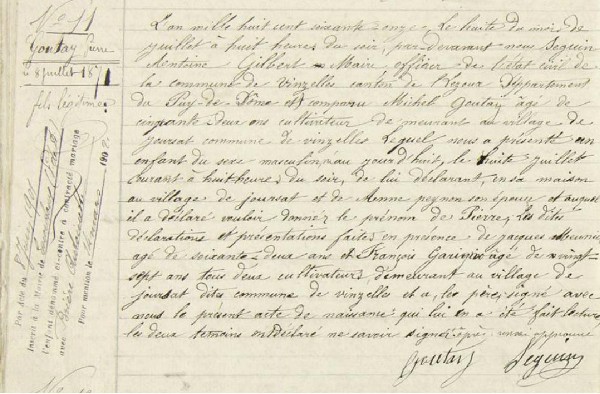 No 11
Goutay Pierre
8 juillet 1871
fils légitime
L'an mille huit cent soixante-onze Le huite du mois de
juillet à huit heures du soir, par-devant nous Seguin
Antoine Gilbert Maire officier de l'état civil de
la commune de Vinzelles canton de Lezoux Département
du Puy-de-Dôme est comparu Michel Goutay âgé de
cinquante deux ans cultivateur demeurant au village de
Joursat commune de Vinzelles Lequel nous a présenté un
enfant du sexe masculin, né aujourd'hui, le huite juillet
courant à huit heures, du soir, de lui déclarant, en sa maison
au village de joursat et de son épouse et auquel
il a déclaré vouloir donner le prénom de Pierre, les dites
déclarations et présentations faites en présence de jacques
agé de soixante-deux ans et François âgé de vingt-
sept ans tous deux cultivateurs, demeurant au village de
joursat dites commune de vinzelles et a, les père, signé avec
nous le présent acte de naissance qui lui en a été fait lecture
les deux temoins ont déclaré ne savoir signer
Goutay Seguin
Par acte du
inscrit à la Mairie de
l'enfant ci-contre a contracté mariage
avec
Pour mention le 190